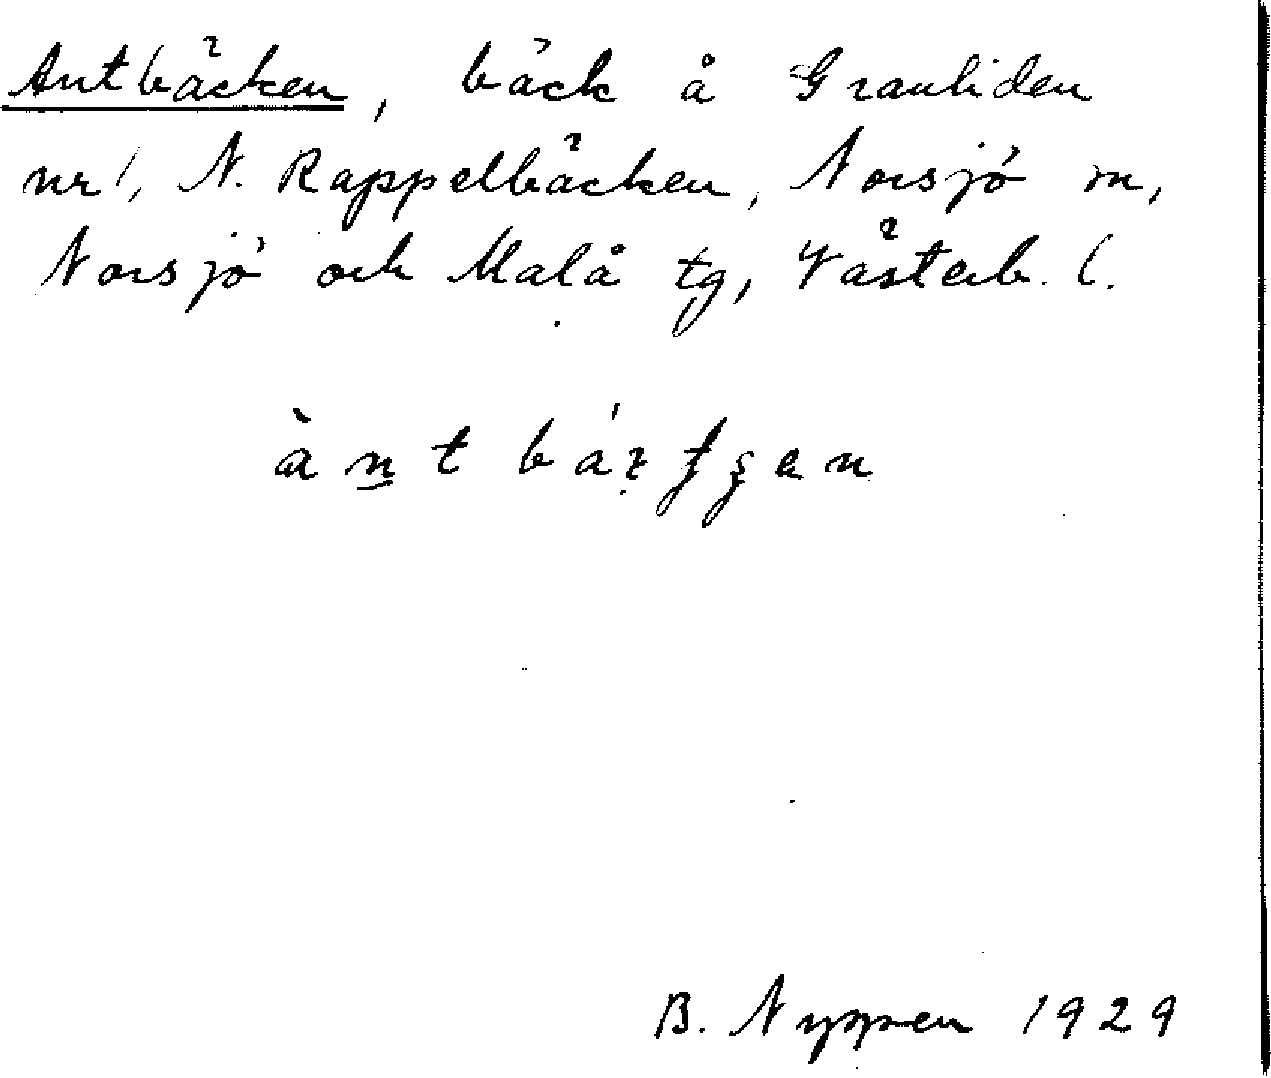 Antbäcken, bäck å Granliden
nr 1, N. Rappelbäcken, Norsjö m,
Norsjö och Malå tg, Västerb. l.
B. Nyppen 1929